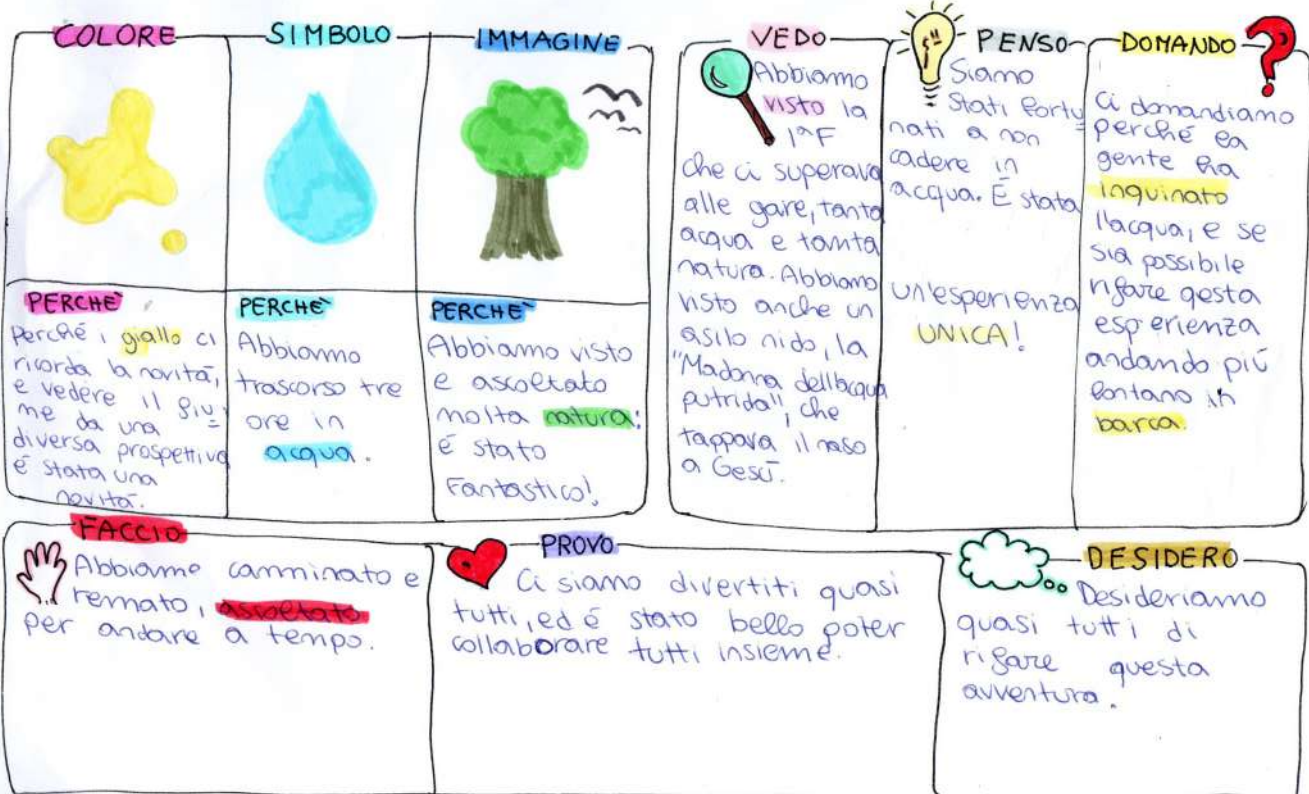 COLORE
SIMBOLO
IMMAGINE
PERCHÈ
Perché i giallo ci
ricorda la novitá,
e vedere il fiu=
me da una
diversa prospettiva
é stata una
novitá.
PERCHÈ
Abbiamo
trascorso tre
ore in
acqua.
PERCHÈ
Abbiamo visto
e ascoltato
molta natura:
é stato
Fantastico!
VEDO
Abbiamo
visto la
1ªF
che ci superava
alle gare, tanta
acqua e tanta
natura. Abbiamo
visto anche un
asilo nido, la
"Madonna dell'acqua
putrida", che
tappava il naso
a Gesú.
PENSO
Siamo
stati fortu=
nati a non
cadere in
acqua. É stata
un'esperienza
UNICA!
DOMANDO
Ci domandiamo
perché la
gente ha
inquinato
l'acqua, e se
sia possibile
rifare qesta
esperienza
andando piú
lontano in
barca.
FACCIO
Abbiamo camminato e
remato, ascoltato
per andare a tempo.
PROVO
Ci siamo divertiti quasi
tutti, ed é stato bello poter
collaborare tutti insieme.
DESIDERO
Desideriamo
quasi tutti di
rifare questa
avventura.